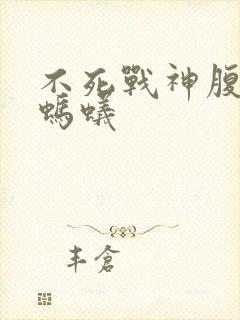 不死戰神腹
螞蟻
丰倉